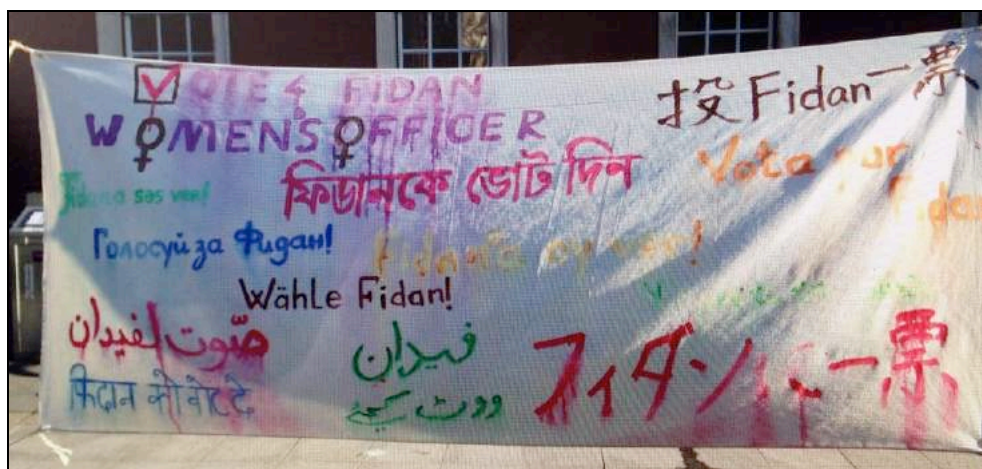 VOTE 4 FIDAN
WOMEN'S OFFICER
投 Fidan 一票
ফিডানকে ভোট দিন
Vota por
Fidan
Fidana səs ver!
Голосуй за Фидан!
Fidan'a oy ver!
Wähle Fidan!
صوّت لفيدان
فیدان
ووٹ کیجئے
फिदान को वोट दे
フィダンに一票